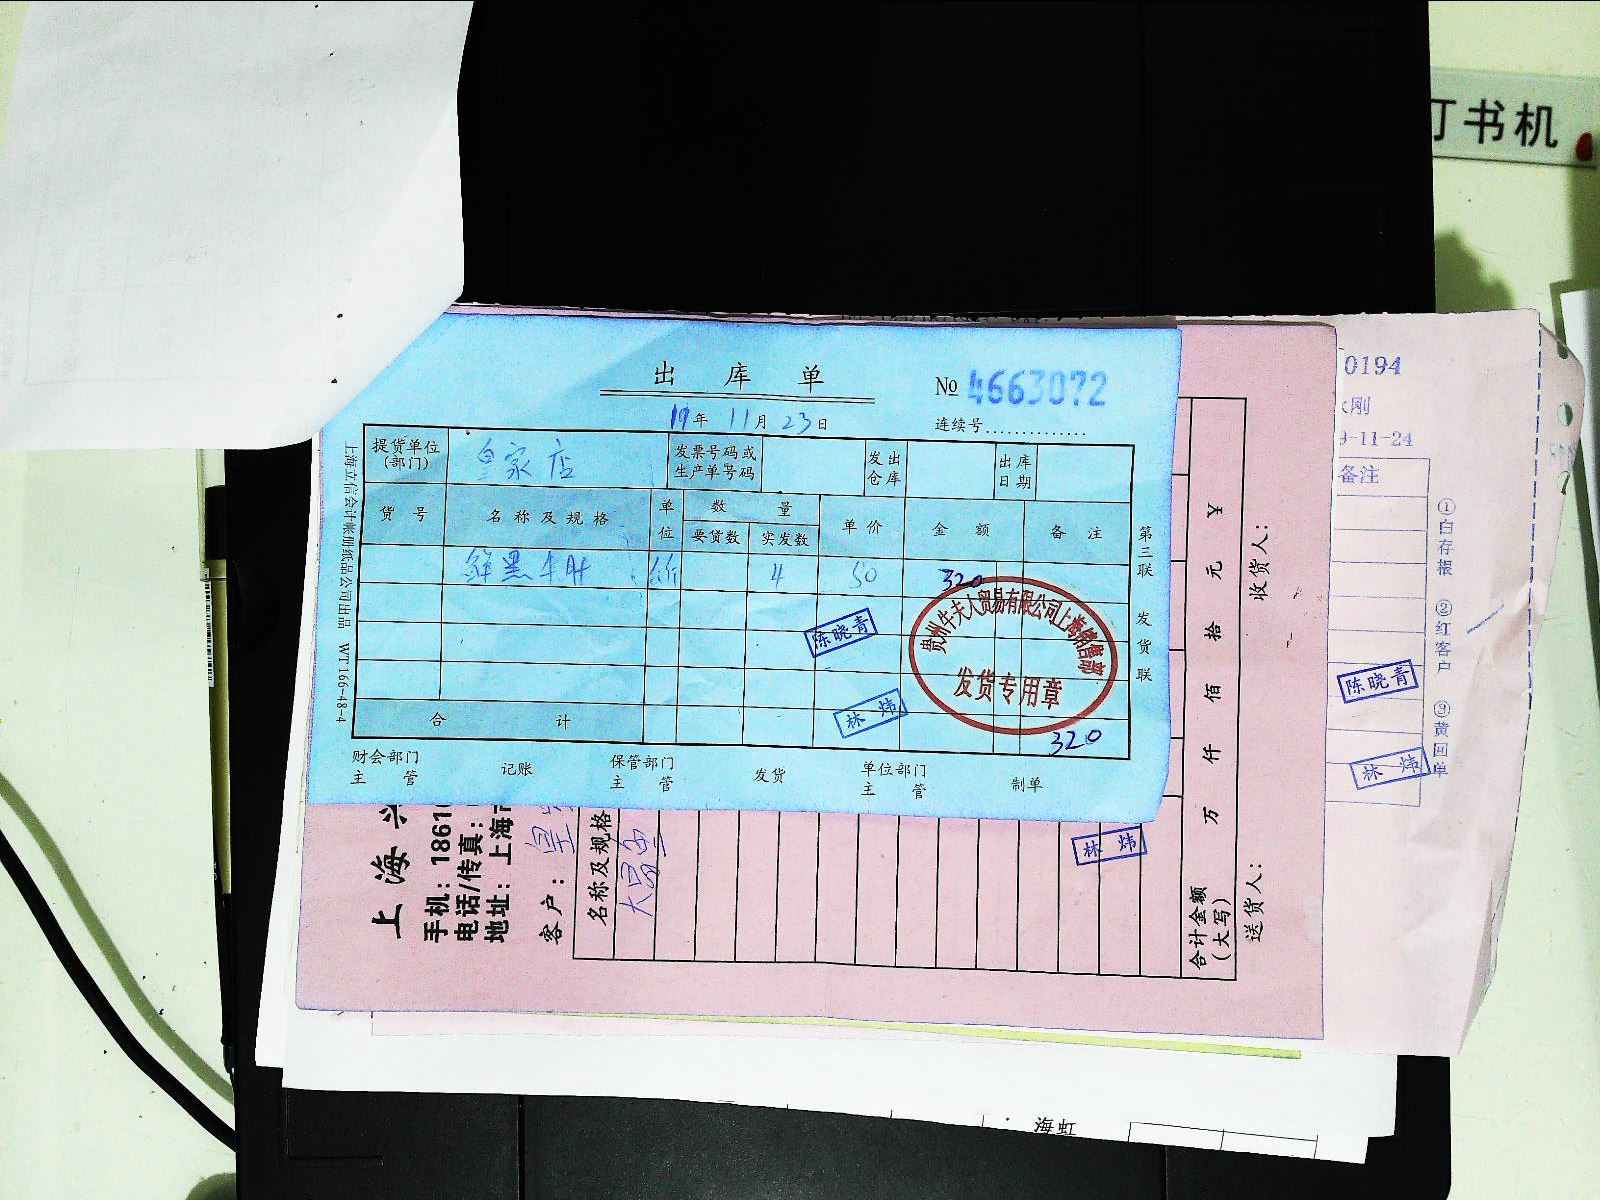 订书机
出库单
№ 4663072
19年 11月 23日
连续号
提货单位
(部门)
皇家店
发票号码或
生产单号码
发出
仓库
出库
日期
货号
名称及规格
单位
数量
要货数
实发数
单价
金额
备注
鲜黑牛肚
4
50
320
贵州牛夫人贸易有限公司上海销售部
发货专用章
陈晓青
林炜
合计
320
财会部门
主管
记账
保管部门
主管
发货
单位部门
主管
制单
第三联 发货联
上海立信会计帐册纸品公司出品 WT 166-48-4
上海
手机：1861
电话/传真：
地址：上海市
客户：皇
名称及规格
林炜
合计金额
(大写)
万 仟 佰 拾 元 ¥
送货人：
收货人：
0194
刚
9-11-24
备注
①白存根 ②红客户 ③黄回单
陈晓青
林炜
海虹